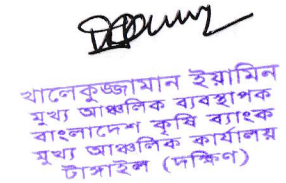 খালেকুজ্জামান ইয়ামিন
মুখ্য আঞ্চলিক ব্যবস্থাপক
বাংলাদেশ কৃষি ব্যাংক
মুখ্য আঞ্চলিক কার্যালয়
টাঙ্গাইল (দক্ষিণ)